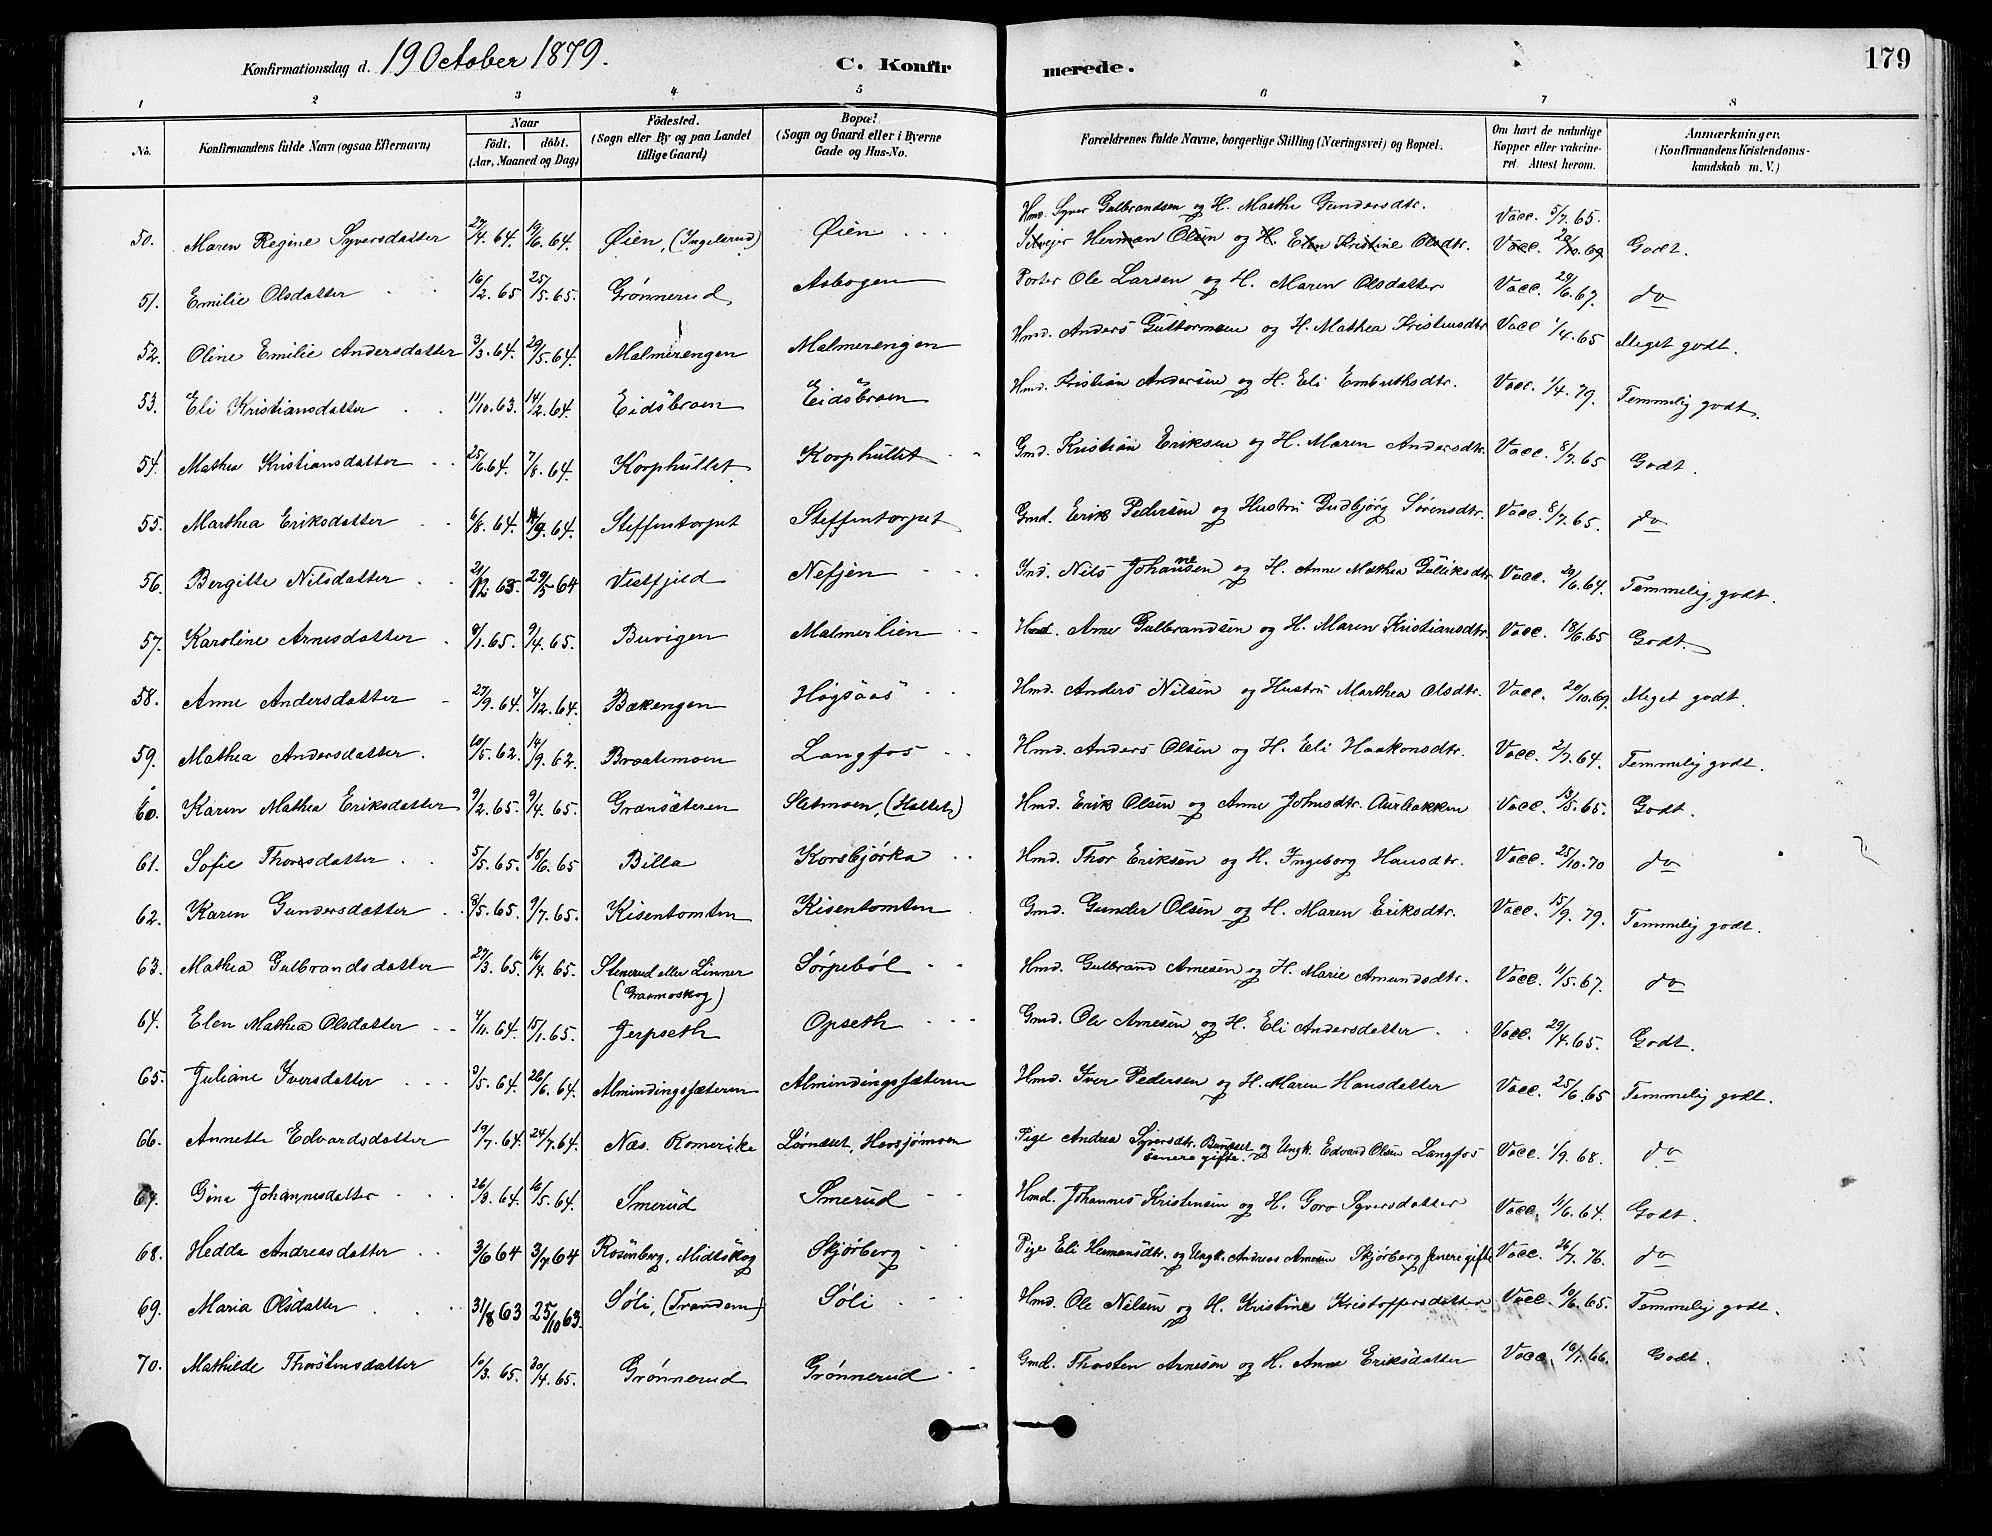 Konfirmationsdag d. 19 October 1879. C. Konfirmerede. 179
1 2 3 4 5 6 7 8
No. Konfirmandens fulde Navn (ogsaa Efternavn) Naar født. døbt. (Aar, Maaned og Dag) Födested. (Sogn eller By og paa Landet tillige Gaard) Bopæl (Sogn og Gaard eller i Byerne Gade og Hus-No. Forældrenes fulde Navne, borgerlige Stilling (Næringsvei) og Bopæl. Om havt de naturlige Kopper eller vakcineret. Attest herom. Anmærkninger. (Konfirmandens Kristendomskundskab m. V.)
Hmd. Syver Gulbrandsen og H. Marthe Gundersdtr. Vacc. 5/7. 65.
50. Maren Regine Syversdatter 27/4. 64. 19/6. 64. Øien, (Ingelsrud) Øien Selvejer Herman Olsen og H. Elen Kristine Olsdtr. Vacc. 20/10. 69 Godt.
51. Emilie Olsdatter 16/2. 65 25/5. 65. Grønnerud Aabogen Porter Ole Larsen og H. Maren Olsdatter Vacc. 20/6. 67. do
52. Oline Emilie Andersdatter 3/3. 64. 29/5. 64. Malmerengen Malmerengen Hmd. Anders Guttormsen og H. Mathea Kristensdtr. Vacc 1/4. 65 Meget godt.
53. Eli Kristiansdatter 11/10. 63. 14/2. 64. Eidsbraen Eidsbraen Hmd. Kristian Andersen og H. Eli Embretsdtr. Vacc. 1/4. 79. Temmelig godt.
54. Mathea Kristiansdatter 25/6. 64. 7/8. 64. Korphullet Korphullet Gmd. Kristian Eriksen og H. Maren Andersdtr. Vacc. 8/7. 65 Godt.
55. Marthea Eriksdatter 6/8. 64. 11/9. 64. Steffentorpet Steffentorpet Gmd. Erik Pedersen og Hustru Gudbjørg Sørensdtr. Vacc. 8/7. 65. do
56. Bergitte Nilsdatter 21/12. 63. 29/5 64 Vestfjeld Nefjen Ind. Nils Johannesen og H. Anne Mathea Gulliksdtr. Vacc. 29/6. 64. Temmelig, godt.
57. Karoline Arnesdatter 8/1. 65. 9/4. 65. Buvigen Malmerlien Hmd. Arne Gulbrandsen og H. Maren Kristiansdtr. Vacc. 18/6. 65 Godt.
58. Anne Andersdatter 27/9. 64. 4/12. 64. Bækengen Høgsaas Hmd. Anders Nilsen og Hustru Marthea Olsdtr. Vacc. 20/10. 69. Meget godt.
59. Mathea Andersdatter. 10/5. 62. 14/9. 62. Braatemoen Langfos Hmd. Anders Olsen og H. Eli Haakonsdtr. Vacc. 2/7. 64. Temmelig godt.
60. Karen Mathea Eriksdatter 9/2. 65. 9/4. 65. Gransæteren Sletmoen, (Haltet) Hmd. Erik Olsen og Anne Johnsdtr. Aurbakken Vacc. 13/5. 65. Godt.
61. Sofie Thorsdatter 5/5. 65. 18/6. 65 Billa Korsbjørka Hmd. Thor Eriksen og H. Ingeborg Hansdtr. Vacc. 25/10. 70 do
62. Karen Gundersdatter 8/5. 65. 9/7. 65. Kisentomten Kisentomten Gmd. Gunder Olsen og H. Maren Eriksdtr. Vacc. 15/9. 79. Temmelig godt.
63. Mathea Gulbrandsdatter 27/3. 65. 16/4. 65. Stenerud eller Linner (Graamoskog) Sørpebøl Hmd. Gulbrand Arnesen og H. Marie Amundsdtr. Vacc. 11/5. 67. do
64. Elen Mathea Olsdatter 4/11. 64. 15/1. 65. Jerpseth Opseth Gmd. Ole Arnesen og H. Eli Andersdatter Vacc. 29/4. 65. Godt.
65. Juliane Iversdatter 9/5. 64. 26/6. 64. Almindingsæteren Almindingsæteren Hmd. Iver Pedersen og H. Maren Hansdatter Vacc. 25/6. 65 Temmelig godt.
66. Annette Edvardsdatter 19/7. 64. 24/7. 64. Næs. Romerike Lørnæset, Havsjømoen Pige Andrea Syversdtr. og Ungk. Edvard Olsen Langfos senere gifte. Vacc. 1/9. 68. do
67. Gina Johannesdatter 26/3. 64. 16/5. 64. Smerud Smerud Hmd. Johannes Kristensen og H. Goro Syversdatter Vacc. 11/6. 64. Godt.
68. Hedda Andreasdatter 3/6 64 3/7 64 Rosenberg, Midtskog Skjørberg Pige Eli Hermansdtr. og Ungk. Andreas Arnesen Skjørberg senere gifte Vacc. 26/7. 76. do
69. Maria Olsdatter 31/8 63 25/10 63. Søli, (Trandem) Søli Hmd. Ole Nilsen og H. Kristine Kristoffersdatter Vacc. 10/6. 65. Temmelig godt.
70. Mathilde Thorstensdatter 10/3. 65. 30/4. 65. Grønnerud Grønnerud Gmd. Thorsten Arnesen og H. Anne Eriksdatter Vacc. 16/7. 66. Godt.